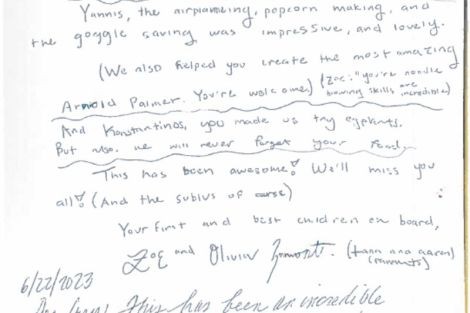 Yannis, the airplaneing, popcorn making, and
the goggle saving was impressive, and lovely.
(We also helped you create the most amazing
Arnold Palmer. You're welcome.) (Zoe: "you're noodle
bowing skills are incredible)
And Konstantinos, you made us try eyeplants.
But also. we will never forget your food.
This has been awesome! We'll miss you
all! (And the subius of ourse)
Your first and best children on board,
Zoe and Olivia (tann ana aaren)
6/22/2023
this has been an incredible